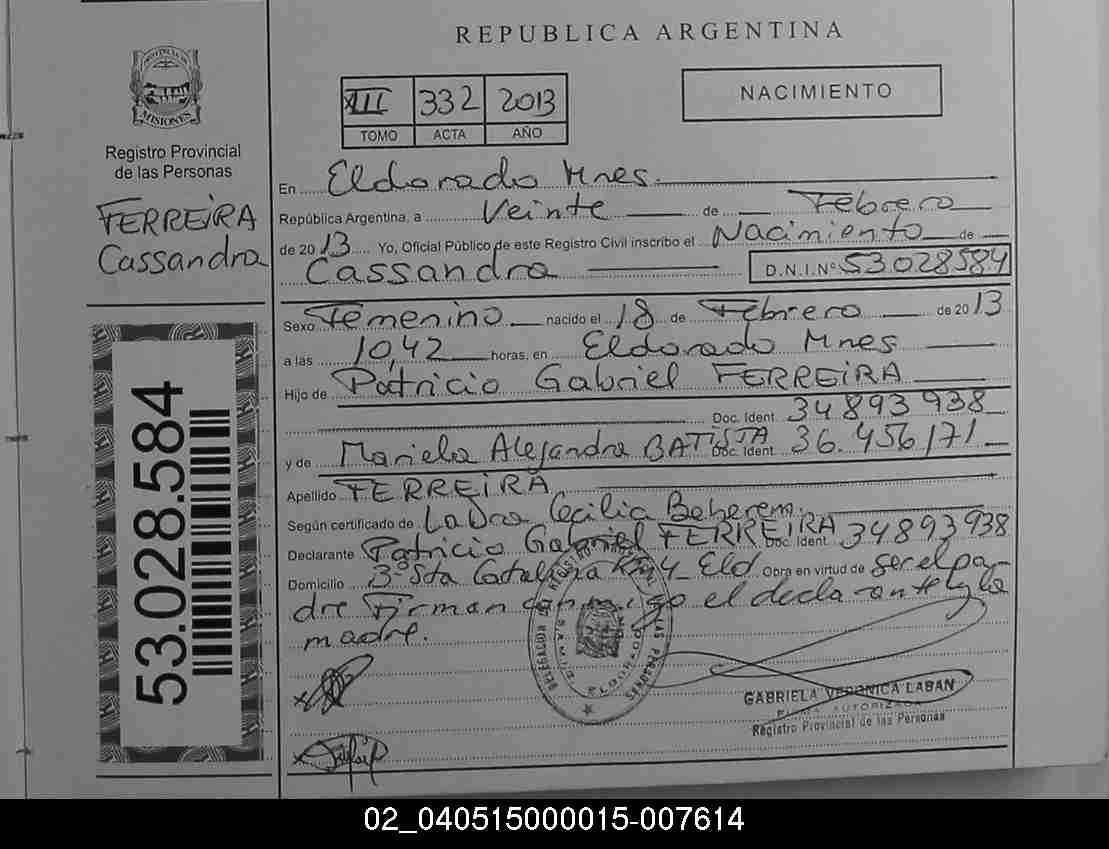 REPUBLICA ARGENTINA
PROVINCIA DE
MISIONES
Registro Provincial
de las Personas
FERREIRA
Cassandra
53.028.584
XIII 332 2013
TOMO ACTA AÑO
NACIMIENTO
En Eldorado Mnes.
República Argentina, a Veinte de Febrero
de 2013 Yo, Oficial Público de este Registro Civil inscribo el Nacimiento de
Cassandra D.N.I.Nº 53028584
Sexo Femenino nacido el 18 de Febrero de 2013
a las 10,42 horas, en Eldorado Mnes
Hijo de Patricio Gabriel FERREIRA
Doc. Ident. 34893938
y de Mariela Alejandra BATISTA Doc. Ident. 36.456171
Apellido FERREIRA
Según certificado de Laura Cecilia
Declarante Patricio Gabriel FERREIRA Doc. Ident. 34893938
Domicilio 3º Sta Catalina Km 4 Eld Obra en virtud de ser el pa
dre Firman conmigo el declarante y la
madre.
DELEGACION REGISTRO PERSONAS
ELDORADO
GABRIELA VERONICA LABAN
FIRMA AUTORIZADA
Registro Provincial de las Personas
02_040515000015-007614